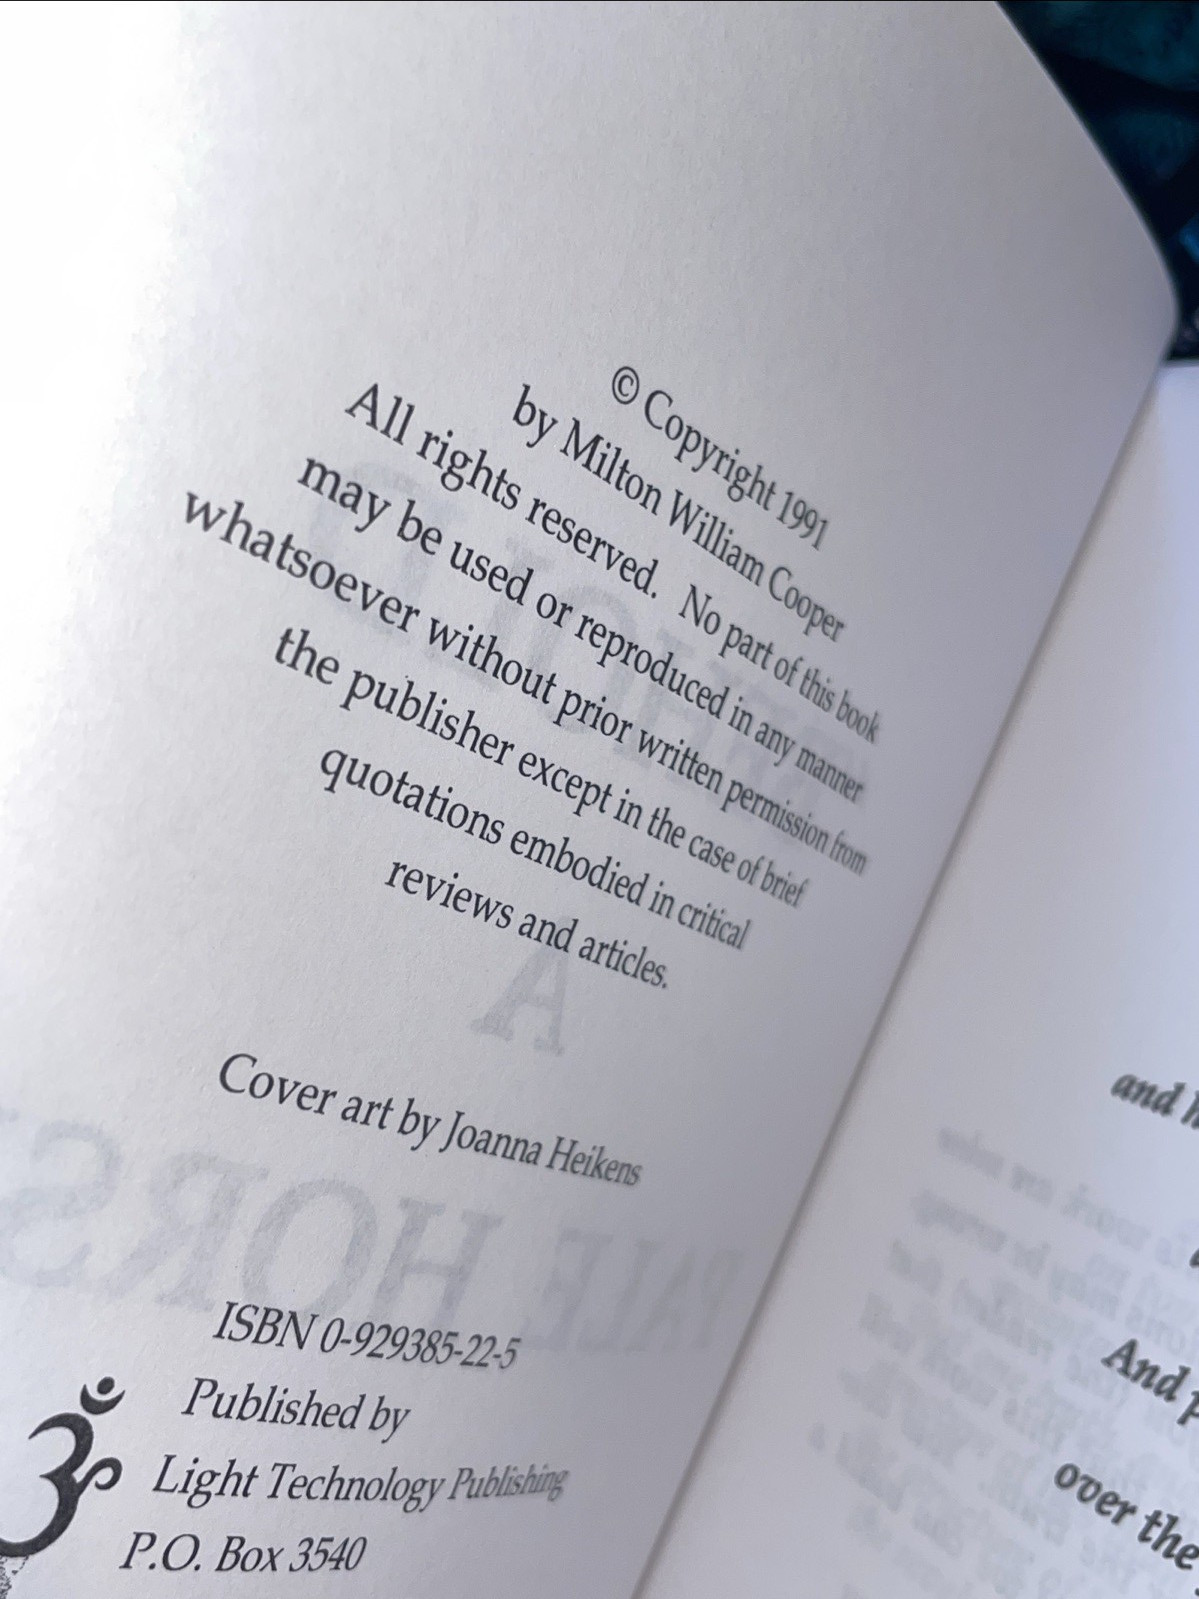 © Copyright 1991
by Milton William Cooper
All rights reserved. No part of this book
may be used or reproduced in any manner
whatsoever without prior written permission from
the publisher except in the case of brief
quotations embodied in critical
reviews and articles.
Cover art by Joanna Heikens
ISBN 0-929385-22-5
Published by
Light Technology Publishing
P.O. Box 3540
ॐ
and
And
over the